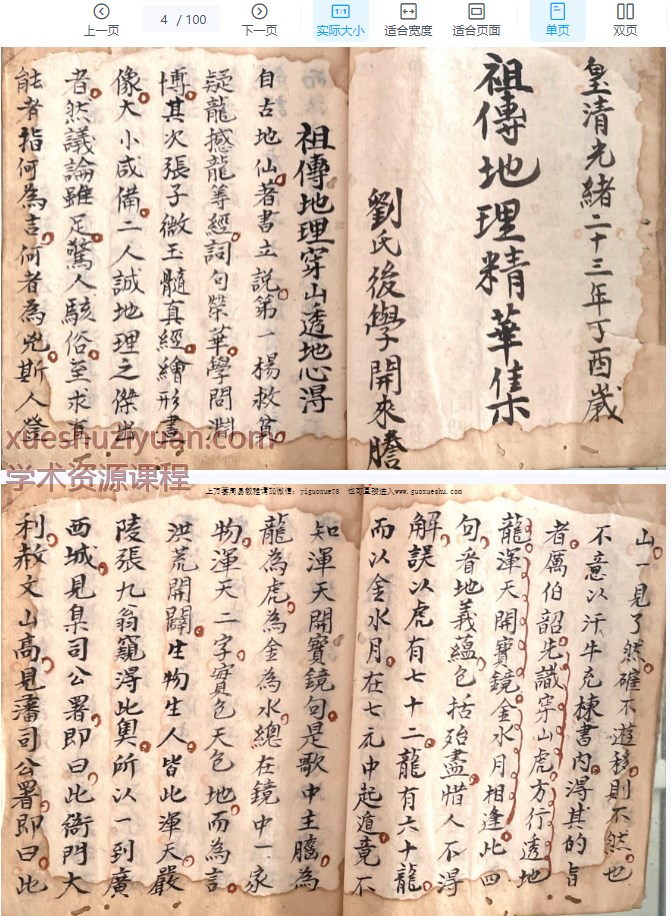 上一页
4 / 100
下一页
1:1
实际大小
适合宽度
适合页面
单页
双页
皇清光緒二十三年丁酉歲
祖傳地理精華集
劉氏後學開來謄
祖傳地理穿山透地心得
自古地仙著書立說第一楊救貧
疑龍撼龍等經詞句榮華學問淵
博其次張子微玉髓真經繪形畫
像大小咸備二人誠地理之傑出
者然議論雖足驚人駭俗至求其
能者指何為吉何者為兇斯人登
xueshuziyuan.com
学术资源课程
上万套周易教程请加微信：yiguoxue78 也可直接进入www.guoxueshu.com
山一見了然確不遊移則不然也
不意以汗牛充棟書內得其的旨
者厲伯韶先識穿山虎方行透地
龍渾天開寶鏡金水月相逢此四
句看地義蘊包括殆盡惜人不得
解誤以虎有七十二龍有六十龍
而以金水月在七元中起遁竟不
知渾天開寶鏡句是歌中主腦為
龍為虎為金為水總在鏡中一家
物渾天二字實包天包地而為言
洪荒開闢生物生人皆此渾天嚴
陵張九翁窺得此奧所以一到廣
西城見臬司公署即曰此衙門大
利赦文山高見藩司公署即曰此